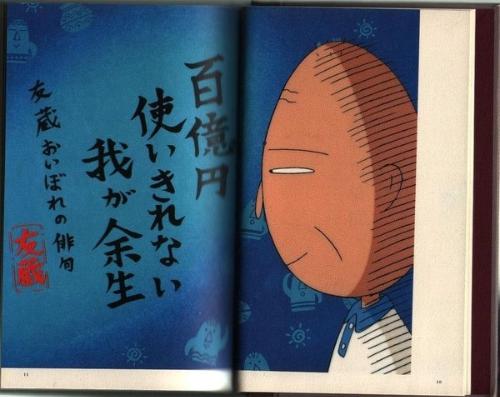 百億円
使いきれない
我が余生
友蔵おいぼれの俳句
友蔵
11
10